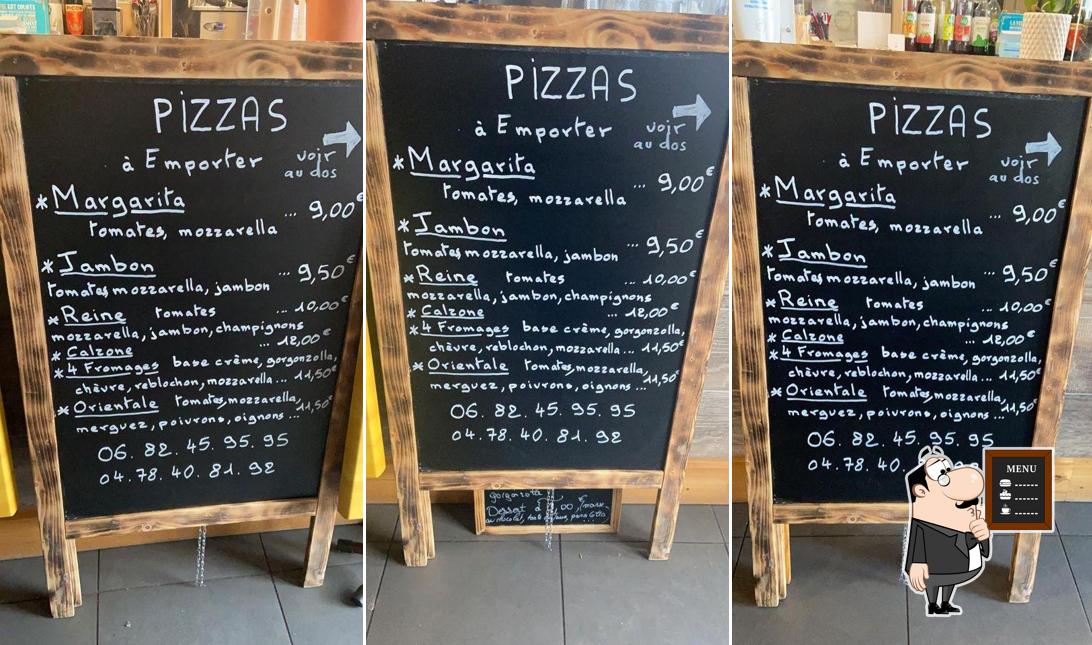 PIZZAS
à Emporter
voir
au dos
* Margarita
tomates, mozzarella ... 9,00€
* Jambon
tomates, mozzarella, jambon ... 9,50€
* Reine tomates ... 10,00€
mozzarella, jambon, champignons
* Calzone ... 12,00€
* 4 Fromages base crème, gorgonzolla,
chèvre, reblochon, mozzarella... 11,50€
* Orientale tomates, mozzarella,
merguez, poivrons, oignons ... 11,50€
06. 82. 45. 95. 95
04. 78. 40. 81. 92
PIZZAS
à Emporter
voir
au dos
* Margarita
tomates, mozzarella ... 9,00€
* Jambon
tomates, mozzarella, jambon ... 9,50€
* Reine tomates ... 10,00€
mozzarella, jambon, champignons
* Calzone ... 12,00€
* 4 Fromages base crème, gorgonzolla,
chèvre, reblochon, mozzarella... 11,50€
* Orientale tomates, mozzarella,
merguez, poivrons, oignons ... 11,50€
06. 82. 45. 95. 95
04. 78. 40. 81. 92
Dessert
PIZZAS
à Emporter
voir
au dos
* Margarita
tomates, mozzarella ... 9,00€
* Jambon
tomates, mozzarella, jambon ... 9,50€
* Reine tomates ... 10,00€
mozzarella, jambon, champignons
* Calzone ... 12,00€
* 4 Fromages base crème, gorgonzolla,
chèvre, reblochon, mozzarella... 11,50€
* Orientale tomates, mozzarella,
merguez, poivrons, oignons ... 11,50€
06. 82. 45. 95. 95
04. 78. 40.
MENU